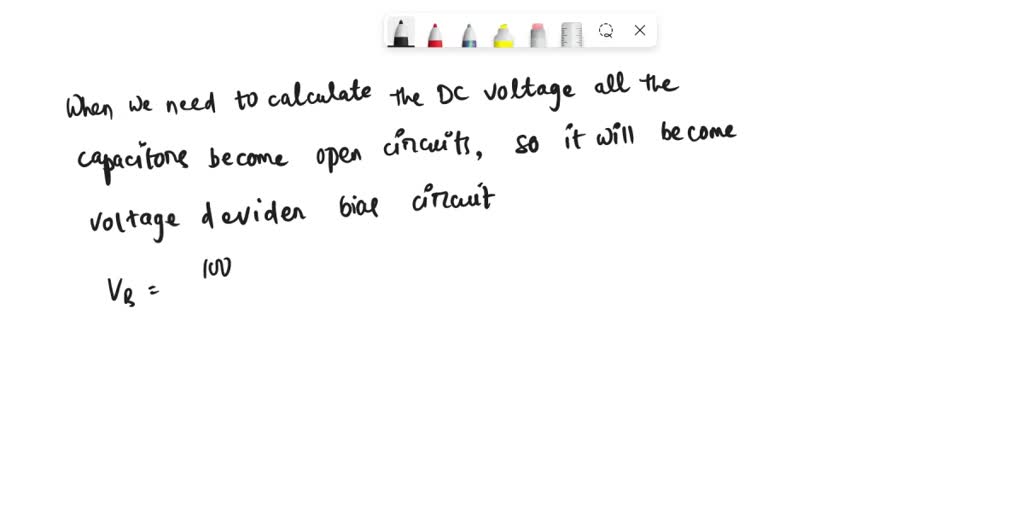 When we need to calculate the DC voltage all the
capacitors become open circuits, so it will become
voltage devider bias circuit
100
V_B =